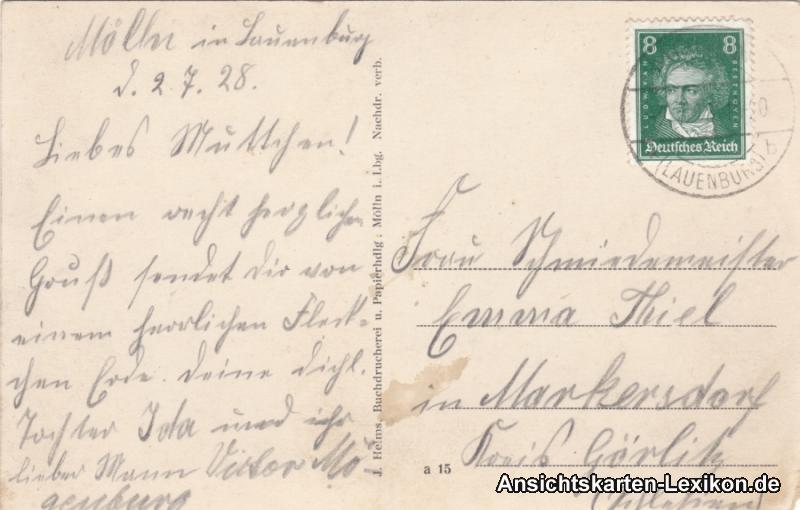 Mölln in Lauenburg
d. 2.7.28.
Liebes Muttchen!
Einen recht herzlichen
Gruß sendet Dir von
einem herrlichen Fleck-
chen Erde. Deine dichl.
Tochter Ida und ihr
lieber Mann Victor Mö-
genburg
J. Helms, Buchdruckerei u. Papierhdlg., Mölln i. Lbg. Nachdr. verb.
a 15
8 8
LUDW. VAN BEETHOVEN
Deutsches Reich
(LAUENBURG) b
Frau Schmiedemeister
Emma Thiel
in Markersdorf
Kreis Görlitz
(Schlesien)
Ansichtskarten-Lexikon.de